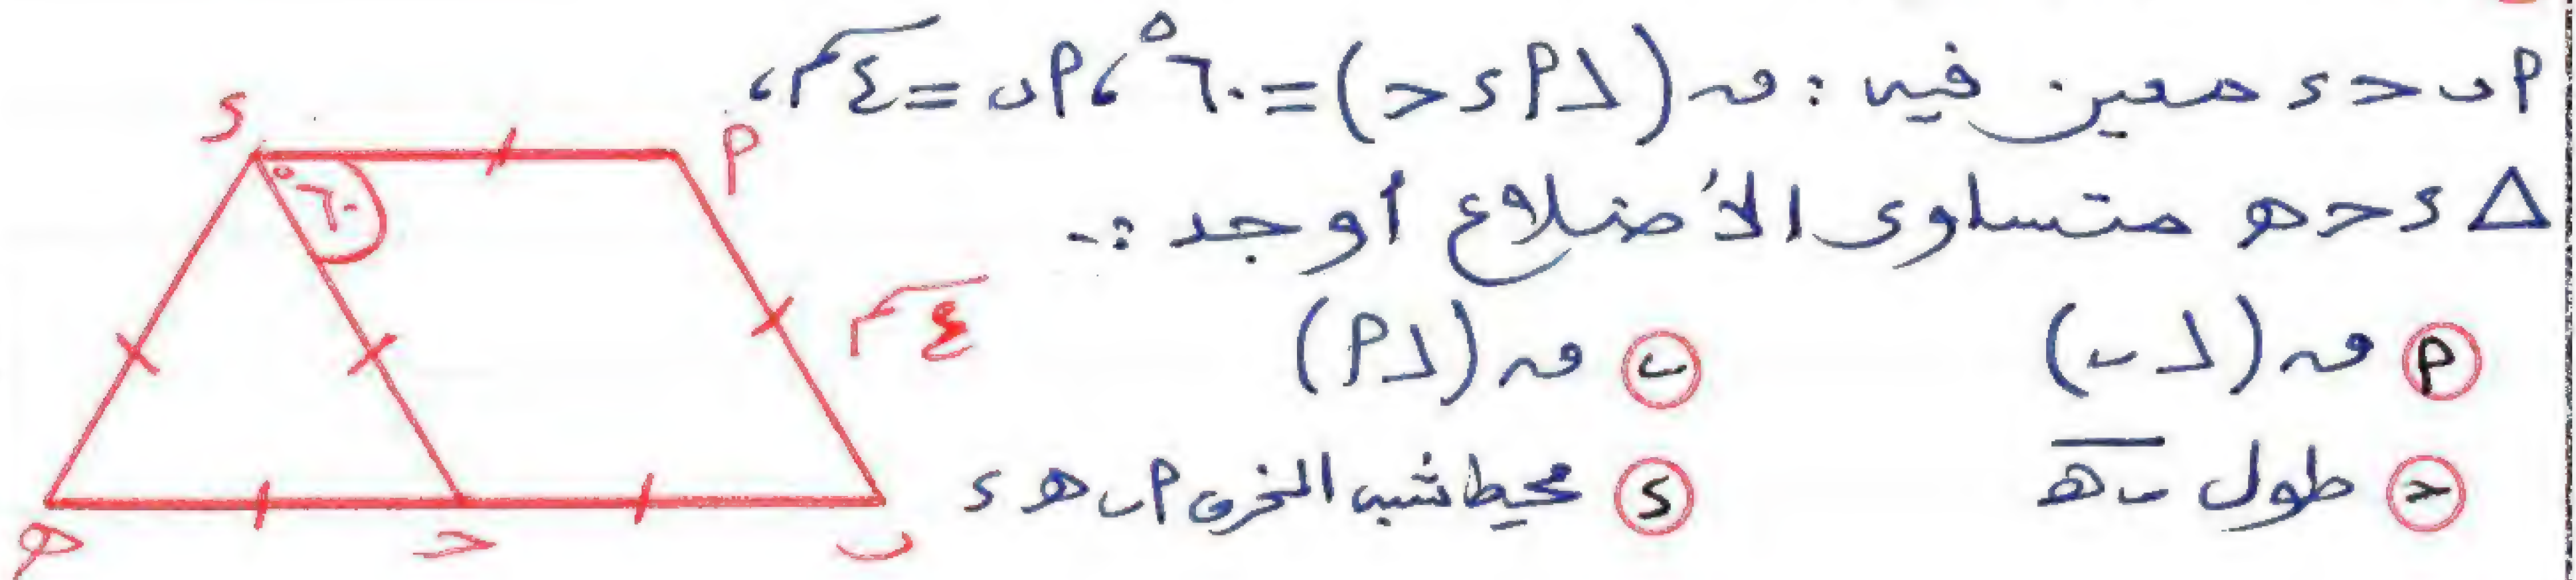 أ ب ج د معين فيه : ق (∠ أ د ج) = ٦٠° ، أ ب = ٤ سم ،
Δ د ج هـ متساوى الأضلاع أوجد :-
أ ق (∠ ب) ب ق (∠ أ)
ج طول ب هـ د محيط شبه المنحرف أ ب هـ د
د أ
٦٠°
٤ سم
هـ ج ب